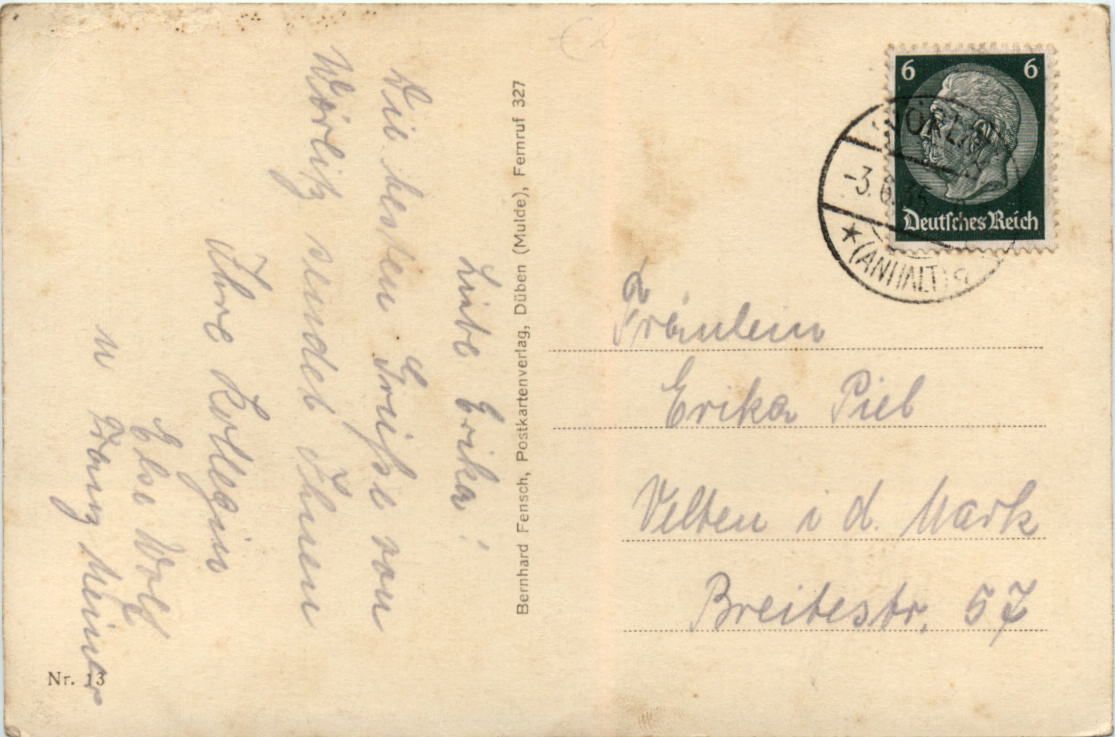 Liebe Erika!
Die besten Grüße von
Wörlitz sendet Ihnen
Ihre Kollegin
Else Wolf
u Franz
Bernhard Fensch, Postkartenverlag, Düben (Mulde), Fernruf 327
Nr. 13
6 6
Deutsches Reich
WÖRLITZ
-3.6.35
(ANHALT) a
Fräulein
Erika Piel
Velten i d. Mark
Breitestr. 57